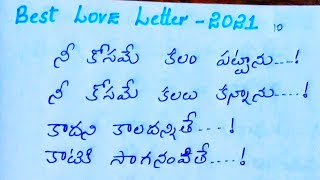 Best LOVE Letter - 2021
నీ కోసమే కలం పట్టాను----!
నీ కోసమే కలలు కన్నాను----!
కాదని కాలదన్నితే----!
కాటికి సాగనంపితే----!